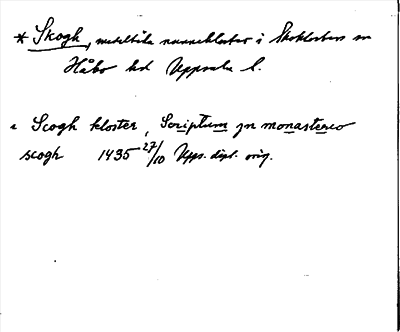 * Skogh, medeltida nunnekloster i Skoklosters sn
Håbo hd Uppsala l.
Scogh kloster, Scriptum jn monasterio
scogh 1435 27/10 Upps. dipl. orig.